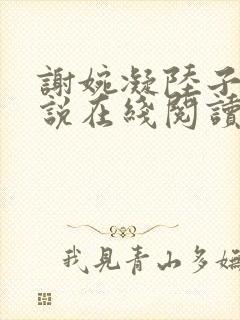 謝婉凝陸子
說在綫閱讀
我見青山多嫵